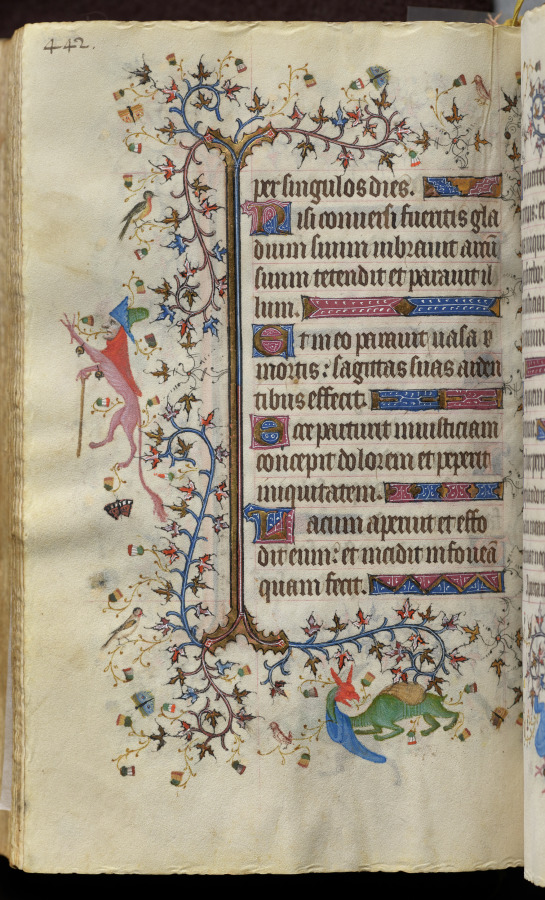 442.
per singulos dies.
Nisi conversi fueritis gla
dium suum vibravit arcū
suum tetendit et paravit il
lum.
Et in eo paravit vasa
mortis: sagittas suas arden
tibus effecit.
Ecce parturit iniusticiam
concepit dolorem et peperit
iniquitatem.
Lacum aperuit et effo
dit eum: et incidit in foveā
quam fecit.